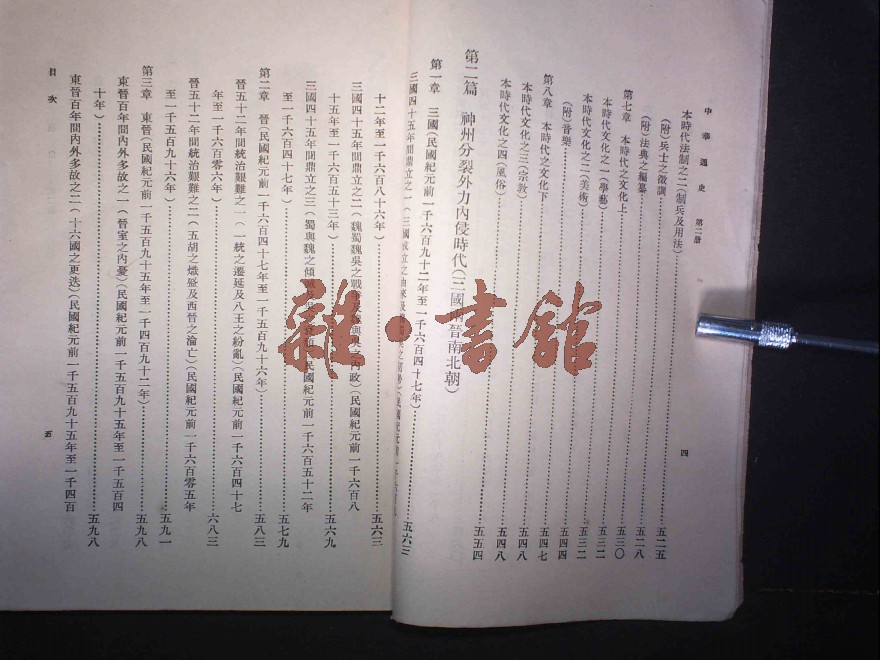 中華通史 第二册
四
本時代法制之二(制兵及用法)……五二五
(附)兵士之徵調……五二八
(附)法典之編纂……五三〇
第七章 本時代之文化上……五三二
本時代文化之一(學藝)……五三二
本時代文化之二(美術)……五四四
(附)音樂……五四七
第八章 本時代之文化下……五四八
本時代文化之三(宗教)……五四八
本時代文化之四(風俗)……五五四
第二篇 神州分裂外力內侵時代(三國兩晉南北朝)
第一章 三國(民國紀元前一千六百九十二年至一千六百四十七年)……五六三
三國四十五年間鼎立之一(三國成立之由來及
十二年至一千六百八十六年)……五六三
三國四十五年間鼎立之二(魏蜀魏吳之戰爭及魏與吳之內政)(民國紀元前一千六百八
十五年至一千六百五十三年)……五六九
三國四十五年間鼎立之三(蜀與魏之傾 民國紀元前一千六百五十二年
至一千六百四十七年)……五七九
第二章 晉(民國紀元前一千六百四十七年至一千五百九十六年)……五八三
晉五十二年間統治艱難之一(一統之遷延及八王之紛亂)(民國紀元前一千六百四十七
年至一千六百零六年)……六八三
晉五十二年間統治艱難之二(五胡之熾盛及西晉之淪亡)(民國紀元前一千六百零五年
至一千五百九十六年)……五九一
第三章 東晉(民國紀元前一千五百九十五年至一千四百九十二年)……五九八
東晉百年間內外多故之一(晉室之內憂)(民國紀元前一千五百九十五年至一千五百四
十年)……五九八
東晉百年間內外多故之二(十六國之更迭)(民國紀元前一千五百九十五年至一千四百
目次
五
雜·書館